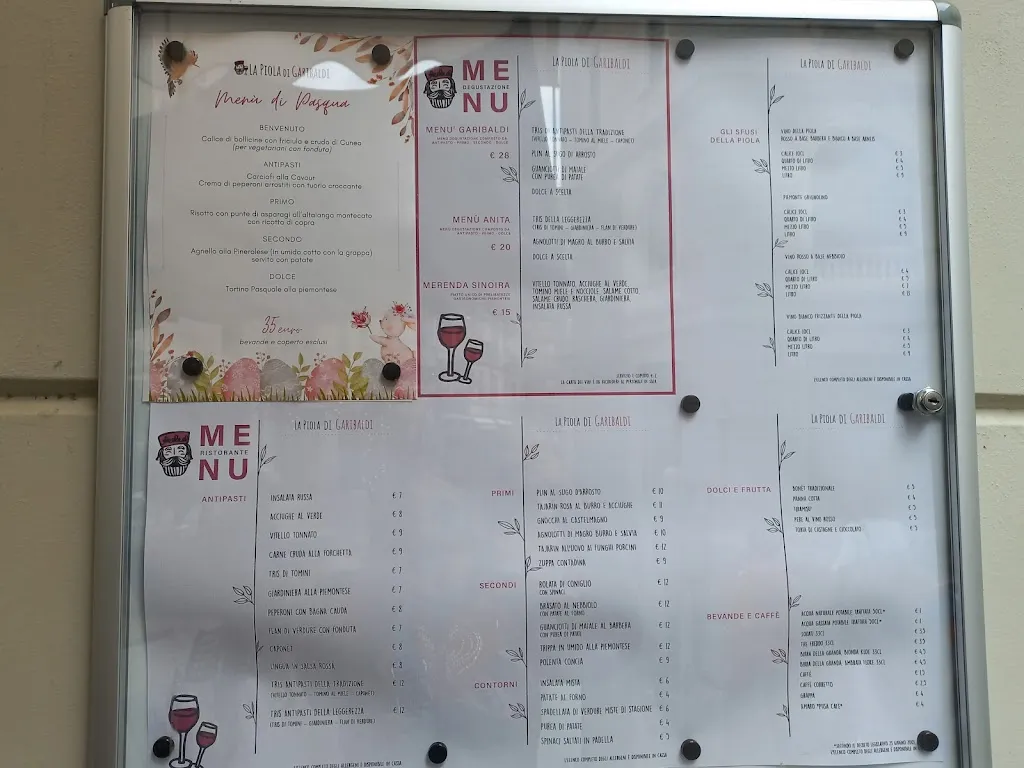 LA PIOLA DI GARIBALDI
Menù di Pasqua
BENVENUTO
Calice di bollicine con friciula e cruda di Cuneo
(per vegetariani con fonduta)
ANTIPASTI
Carciofi alla Cavour
Crema di peperoni arrostiti con tuorlo croccante
PRIMO
Risotto con punte di asparagi all'altalanga mantecato
con ricotta di capra
SECONDO
Agnello alla Pinerolese (in umido cotto con la grappa)
servito con patate
DOLCE
Tortino Pasquale alla piemontese
35 euro
bevande e coperto esclusi
ME
DEGUSTAZIONE
NU
LA PIOLA DI GARIBALDI
MENU' GARIBALDI
€ 28
TRIS DI ANTIPASTI DELLA TRADIZIONE
(VITELLO TONNATO - TOMINO AL MIELE - CAPONET)
PLIN AL SUGO DI ARROSTO
GUANCIOTTI DI MAIALE
CON PUREA DI PATATE
DOLCE A SCELTA
MENÙ ANITA
€ 20
TRIS DELLA LEGGEREZZA
(TRIS DI TOMINI - GIARDINIERA - FLAN DI VERDURE)
AGNOLOTTI DI MAGRO AL BURRO E SALVIA
DOLCE A SCELTA
MERENDA SINOIRA
€ 15
VITELLO TONNATO, ACCIUGHE AL VERDE,
TOMINO MIELE E NOCCIOLE, SALAME COTTO,
SALAME CRUDO, RASCHERA, GIARDINIERA,
INSALATA RUSSA
SERVIZIO E COPERTO € 2
LA CARTA DEI VINI È DA RICHIEDERE AL PERSONALE DI SALA
LA PIOLA DI GARIBALDI
GLI SFUSI
DELLA PIOLA
VINO DELLA PIOLA
ROSSO A BASE BARBERA E BIANCO A BASE ARNEIS
CALICE 10CL € 3
QUARTO DI LITRO € 4
MEZZO LITRO € 5
LITRO € 9
PIEMONTE GRIGNOLINO
CALICE 10CL € 3
QUARTO DI LITRO € 4
MEZZO LITRO € 5
LITRO € 9
VINO ROSSO A BASE NEBBIOLO
CALICE 10CL € 4
QUARTO DI LITRO € 5
MEZZO LITRO € 7
LITRO
VINO BIANCO FRIZZANTE DELLA PIOLA
CALICE 10CL € 3
QUARTO DI LITRO € 4
MEZZO LITRO € 5
LITRO € 9
L'ELENCO COMPLETO DEGLI ALLERGENI È DISPONIBILE IN CASSA
ME
RISTORANTE
NU
LA PIOLA DI GARIBALDI
ANTIPASTI
INSALATA RUSSA € 7
ACCIUGHE AL VERDE € 8
VITELLO TONNATO € 9
CARNE CRUDA ALLA FORCHETTA € 9
TRIS DI TOMINI € 7
GIARDINIERA ALLA PIEMONTESE € 7
PEPERONI CON BAGNA CAUDA € 8
FLAN DI VERDURE CON FONDUTA € 7
CAPONET € 8
LINGUA IN SALSA ROSSA € 8
TRIS ANTIPASTI DELLA TRADIZIONE € 12
(VITELLO TONNATO - TOMINO AL MIELE - CAPONET)
TRIS ANTIPASTI DELLA LEGGEREZZA € 12
(TRIS DI TOMINI - GIARDINIERA - FLAN DI VERDURE)
L'ELENCO COMPLETO DEGLI ALLERGENI È DISPONIBILE IN CASSA
LA PIOLA DI GARIBALDI
PRIMI
PLIN AL SUGO D'ARROSTO € 10
TAJARIN ROSA AL BURRO E ACCIUGHE € 11
GNOCCHI AL CASTELMAGNO € 9
AGNOLOTTI DI MAGRO BURRO E SALVIA € 10
TAJARIN ALL'UOVO AI FUNGHI PORCINI € 12
ZUPPA CONTADINA € 9
SECONDI
ROLATA DI CONIGLIO € 12
CON SPINACI
BRASATO AL NEBBIOLO € 12
CON PATATE AL FORNO
GUANCIOTTI DI MAIALE AL BARBERA € 12
CON PUREA DI PATATE
TRIPPA IN UMIDO ALLA PIEMONTESE € 12
POLENTA CONCIA € 9
CONTORNI
INSALATA MISTA € 6
PATATE AL FORNO € 4
SPADELLATA DI VERDURE MISTE DI STAGIONE € 6
PUREA DI PATATE € 4
SPINACI SALTATI IN PADELLA € 5
L'ELENCO COMPLETO DEGLI ALLERGENI È DISPONIBILE IN CASSA
LA PIOLA DI GARIBALDI
DOLCI E FRUTTA
BONET TRADIZIONALE € 5
PANNA COTTA € 4
TIRAMISU' € 5
PERE AL VINO ROSSO € 5
TORTA DI CASTAGNE E CIOCCOLATO € 5
BEVANDE E CAFFÈ
ACQUA NATURALE POTABILE TRATTATA 50CL* € 1
ACQUA GASATA POTABILE TRATTATA 50CL* € 1
33CL € 3.5
THE FREDDO 33CL € 3.5
BIRRA DELLA GRANDA BIONDA 33CL € 4.5
BIRRA DELLA GRANDA AMBRATA 33CL € 4.5
CAFFÈ € 1.5
CAFFÈ CORRETTO € 2.5
GRAPPA € 4
AMARO € 4
L'ELENCO COMPLETO DEGLI ALLERGENI È DISPONIBILE IN